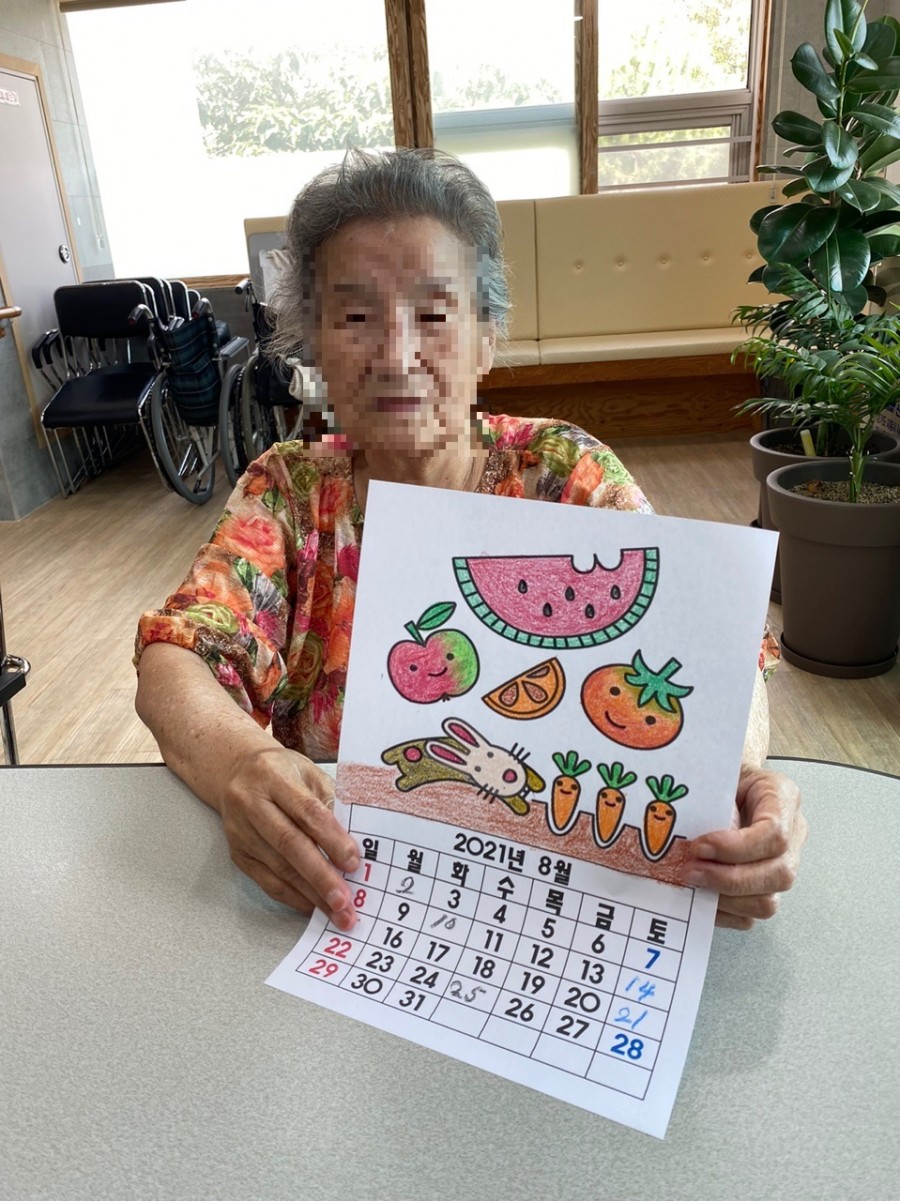 2021년 8월
일 월 화 수 목 금 토
1 2 3 4 5 6 7
8 9 10 11 12 13 14
16 17 18 19 20 21
22 23 24 25 26 27 28
29 30 31